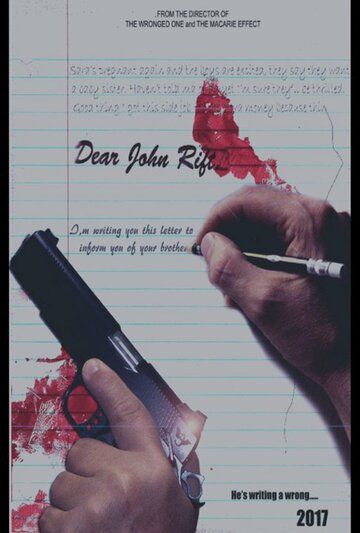 .FROM THE DIRECTOR OF
THE WRONGED ONE and THE MACARIE EFFECT
Sara's pregnant again and the boys are excited, they say they want
a baby sister. Haven't told ma yet "I'm sure they'll be thrilled.
Good thing I got this side job money because thin
Dear John Rift
I,m writing you this letter to
inform you of your brother
He's writing a wrong.....
2017